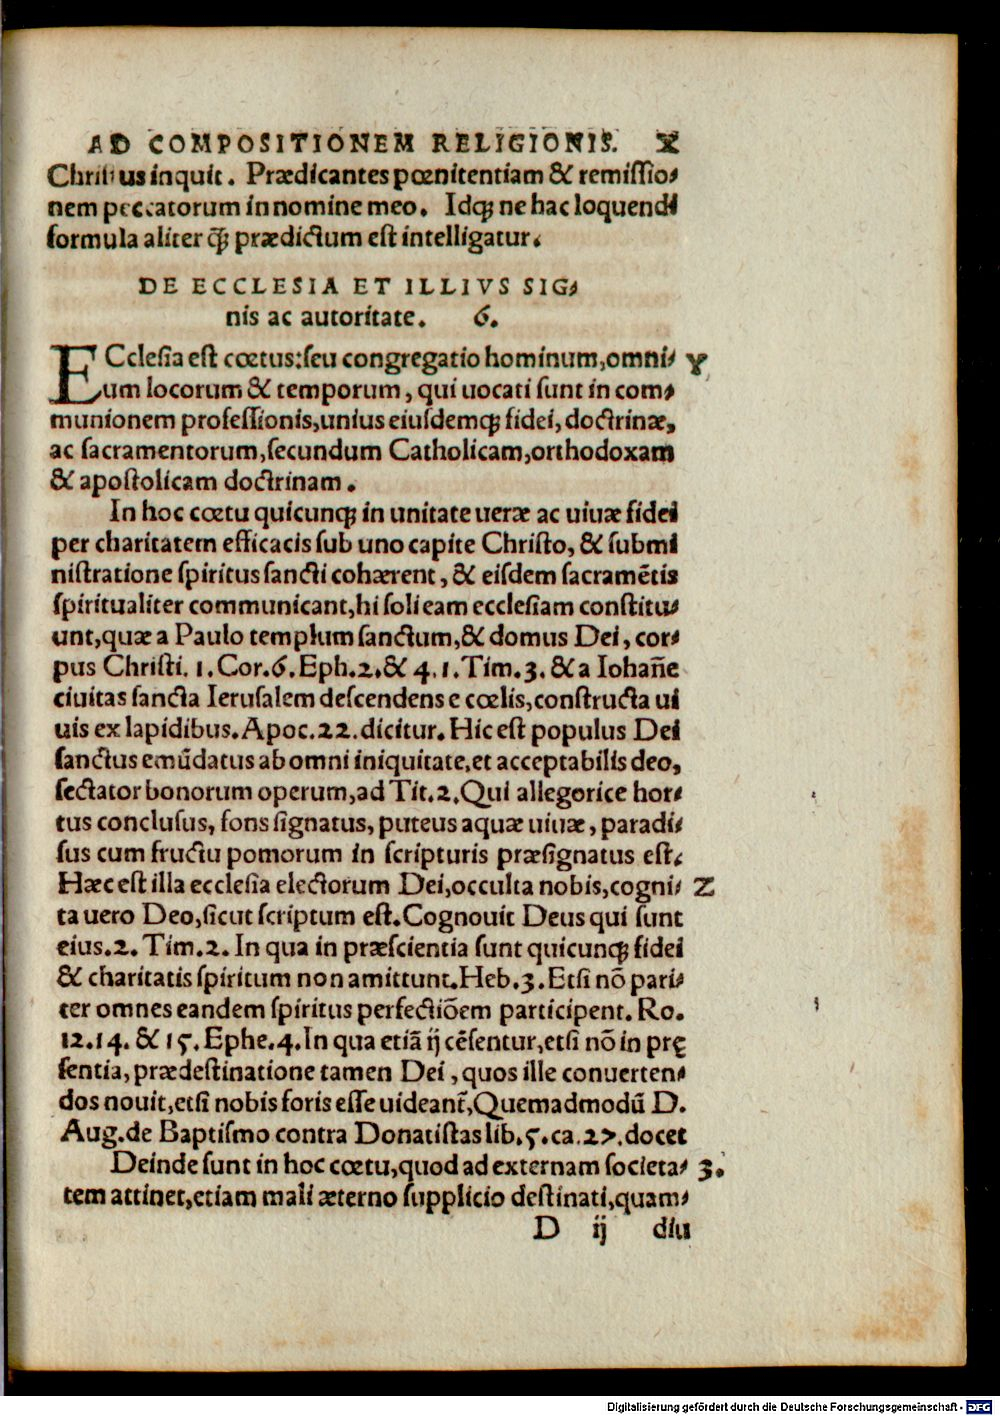 AD COMPOSITIONEM RELIGIONIS. X
Christus inquit. Prædicantes pœnitentiam & remissio⸗
nem peccatorum in nomine meo. Idqꝫ ne hac loquendi
formula aliter q̃ꝫ prædictum est intelligatur.
DE ECCLESIA ET ILLIVS SIG⸗
nis ac autoritate. 6.
ECclesia est cœtus: seu congregatio hominum, omni⸗ Y
um locorum & temporum, qui uocati sunt in com⸗
munionem professionis, unius eiusdemqꝫ fidei, doctrinæ,
ac sacramentorum, secundum Catholicam, orthodoxam
& apostolicam doctrinam.
In hoc cœtu quicunqꝫ in unitate ueræ ac uiuæ fidei
per charitatem efficacis sub uno capite Christo, & submi
nistratione spiritus sancti cohærent, & eisdem sacramẽtis
spiritualiter communicant, hi soli eam ecclesiam constitu⸗
unt, quæ a Paulo templum sanctum, & domus Dei, cor⸗
pus Christi. 1. Cor. 6. Eph. 2. & 4. 1. Tim. 3. & a Iohañe
ciuitas sancta Ierusalem descendens e cœlis, constructa ui
uis ex lapidibus. Apoc. 22. dicitur. Hic est populus Dei
sanctus emũdatus ab omni iniquitate, et acceptabilis deo,
sectator bonorum operum, ad Tit. 2. Qui allegorice hor⸗
tus conclusus, fons signatus, puteus aquæ uiuæ, paradi⸗
sus cum fructu pomorum in scripturis præsignatus est.
Hæc est illa ecclesia electorum Dei, occulta nobis, cogni⸗ Z
ta uero Deo, sicut scriptum est. Cognouit Deus qui sunt
eius. 2. Tim. 2. In qua in præscientia sunt quicunqꝫ fidei
& charitatis spiritum non amittunt. Heb. 3. Etsi nõ pari⸗
ter omnes eandem spiritus perfectiõem participent. Ro.
12. 14. & 15. Ephe. 4. In qua etiã ij cẽsentur, etsi nõ in prę
sentia, prædestinatione tamen Dei, quos ille conuerten⸗
dos nouit, etsi nobis foris esse uideant̃, Quemadmodũ D.
Aug. de Baptismo contra Donatistas lib. 5. ca. 27. docet
Deinde sunt in hoc cœtu, quod ad externam societa⸗ 3.
tem attinet, etiam mali æterno supplicio destinati, quam⸗
D ij diu
Digitalisierung gefördert durch die Deutsche Forschungsgemeinschaft - DFG